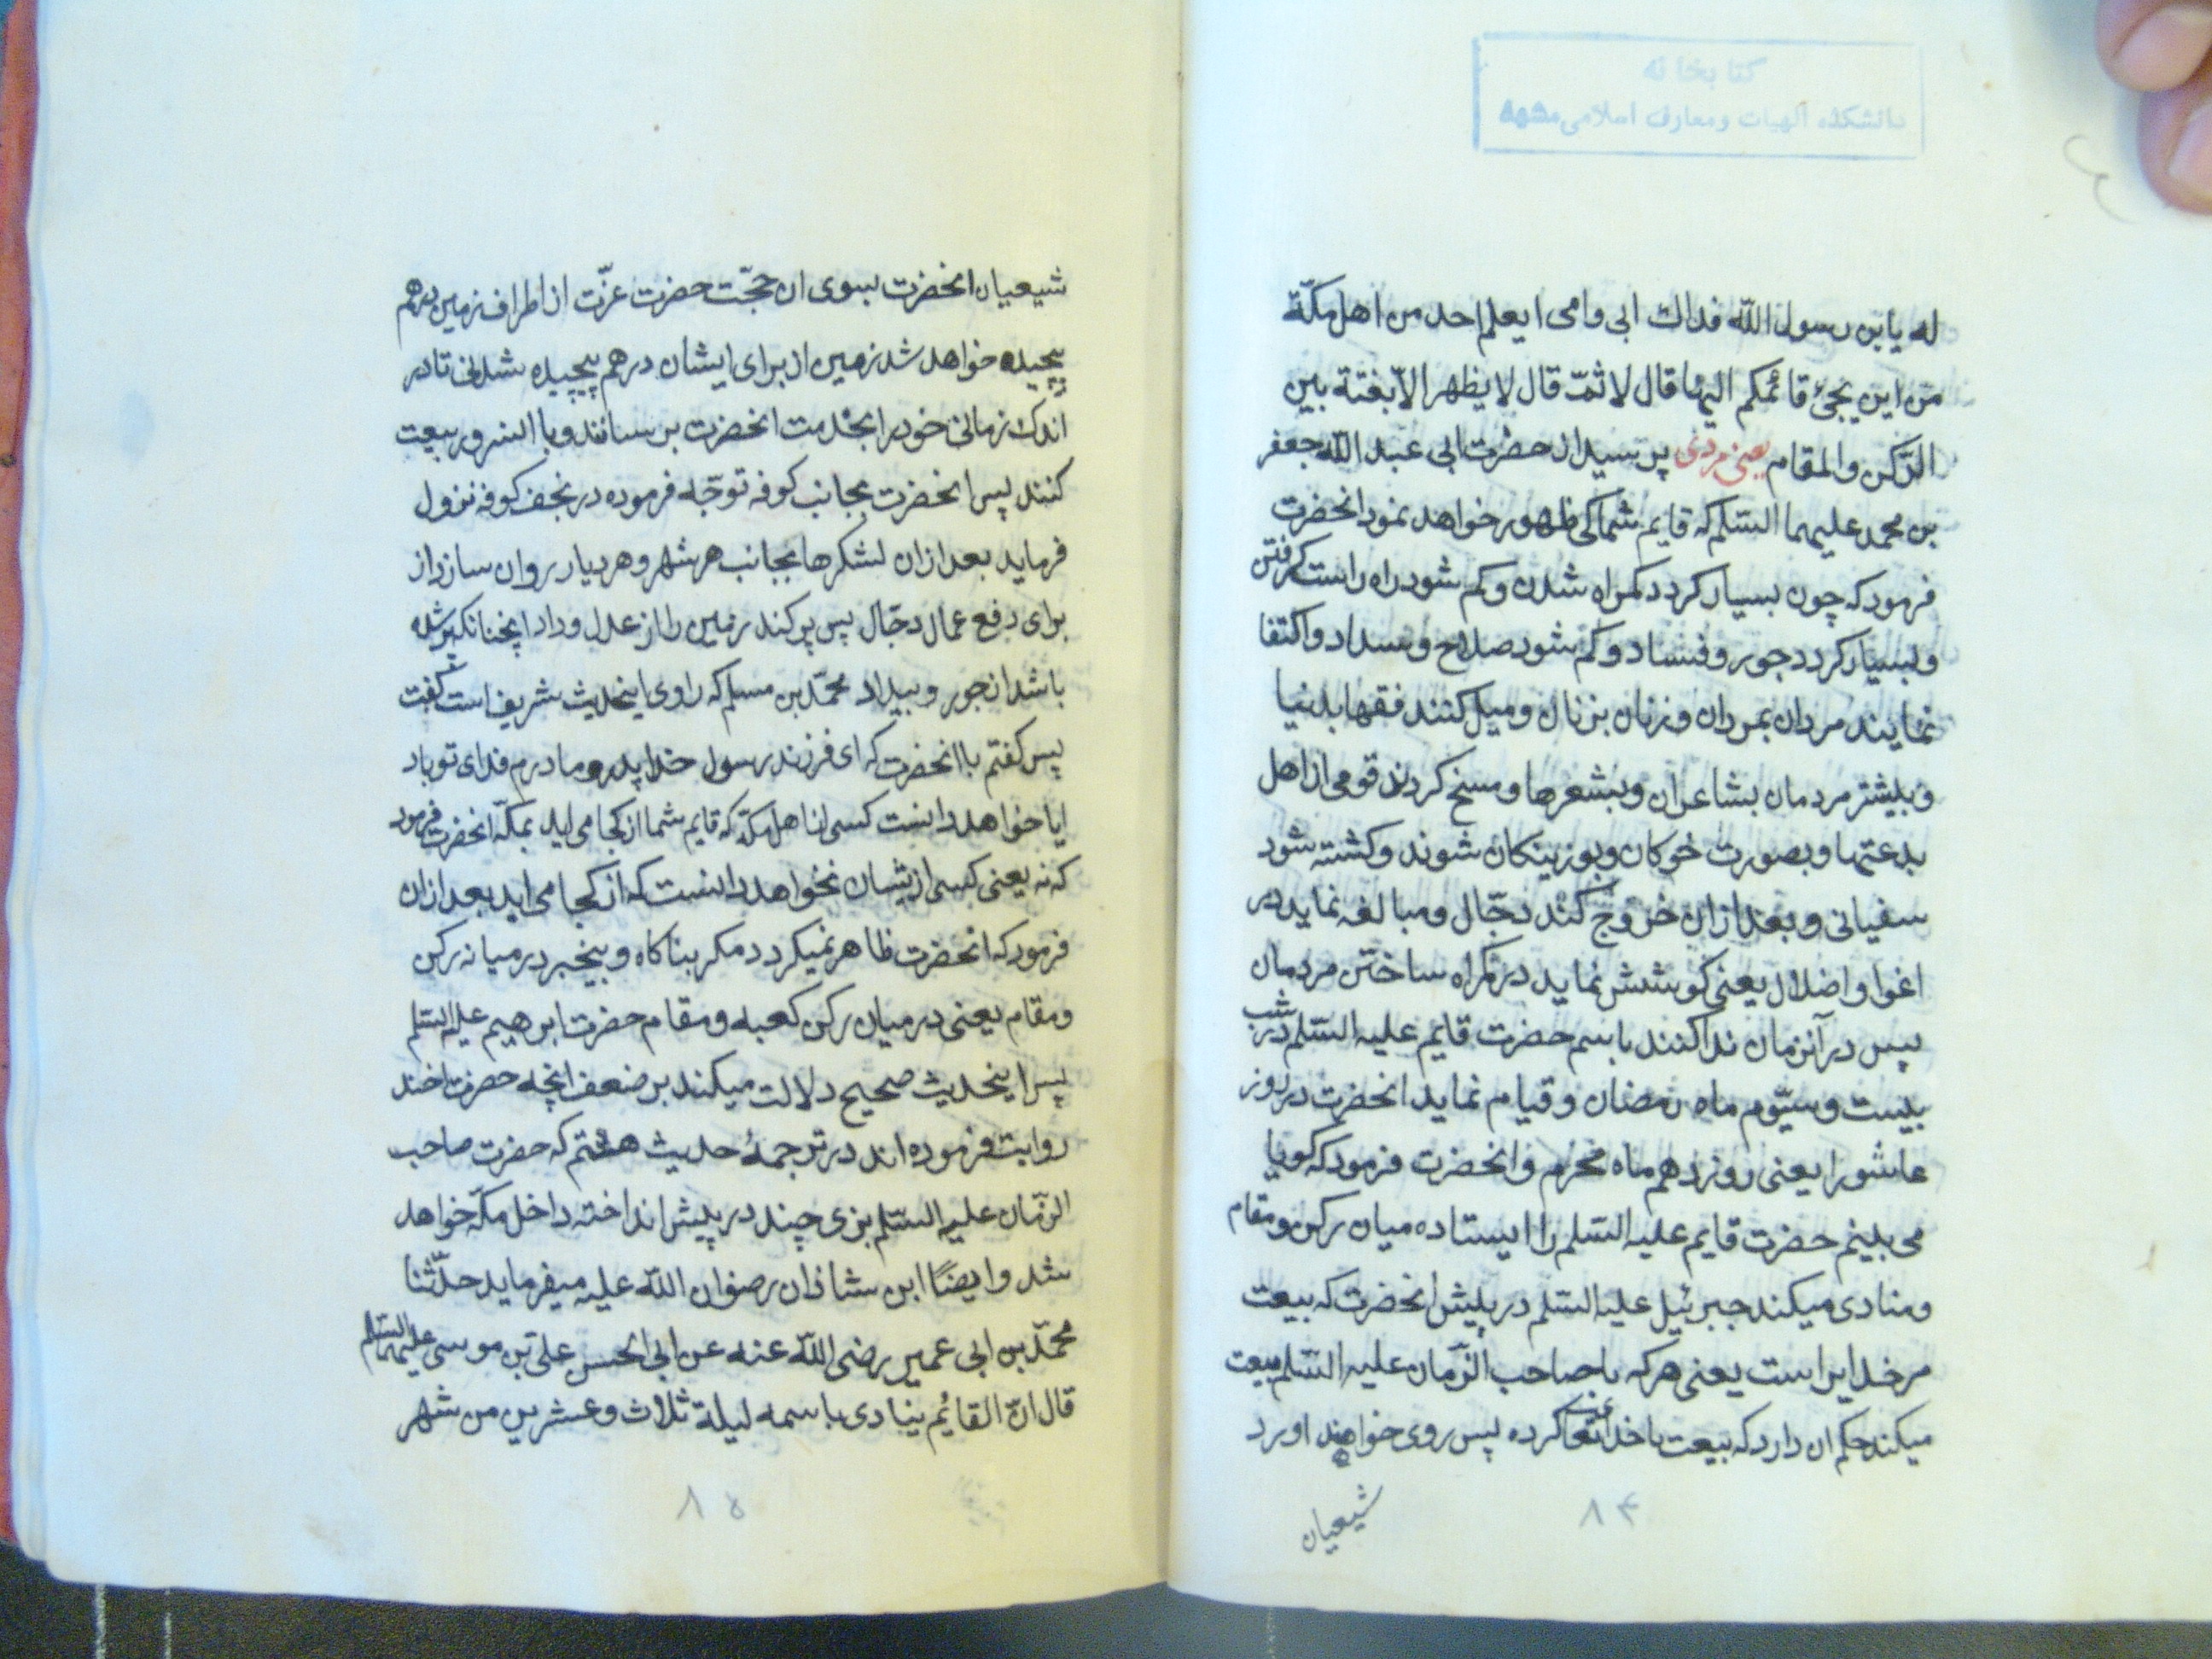 كتابخانه
دانشكده الهيات ومعارف اسلامى مشهد
له يا بن رسول الله فداك ابى وامى ايعلم احد من اهل مكّة
من اين يجئ قائمكم اليها قال لا ثمّ قال لا يظهر الّا بغتة بين
الرّكن والمقام يعنى مردى پرسيد از حضرت ابى عبد الله جعفر
بن محمد عليهما السّلم كه قايم شما كى ظهور خواهد نمود انحضرت
فرمود كه چون بسيار كردد كمراه شدن و كم شود راه راست كرفتن
و بسيار كردد جور و فساد و كم شود صلاح و سداد و اكتفا
نمايند مردان بمردان و زنان بزنان و ميل كنند فقها بدنيا
و بيشتر مردمان بشاعران و بشعرها و مسخ كردند قومى از اهل
بدعتها و بصورت خوكان و بوزينكان شوند و كشته شود
سفيانى و بعد از ان خروج كند دجّال و مبالغه نمايد در
اغوا و اضلال يعنى كوشش نمايد در كمراه ساختن مردمان
پس در آنزمان ندا كنند باسم حضرت قايم عليه السّلم در شب
بيست و سيّوم ماه رمضان و قيام نمايد انحضرت در روز
عاشورا يعنى روز دهم ماه محرم و انحضرت فرمود كه كويا
مى بينم حضرت قايم عليه السّلم را ايستاده ميان ركن و مقام
و منادى ميكند جبرئيل عليه السّلم در پيش انحضرت كه بيعت
مر خدايراست يعنى هر كه با صاحب الزّمان عليه السّلم بيعت
ميكند حكم ان دارد كه بيعت با خدا كرده پس روى خواهند اورد
شيعيان
۸۴
شيعيان انحضرت بسوى ان حجّت حضرت عزّت از اطراف زمين درهم
پيچيده خواهد شد زمين از براى ايشان درهم پيچيده شدنى تا در
اندك زمانى خود را بخدمت انحضرت برسانند و با السرور بيعت
كنند پس انحضرت بجانب كوفه توجّه فرموده در نجف كوفه نزول
فرمايد بعد از ان لشكرها بجانب هر شهر و هر ديار روان سازد از
براى دفع عمال دجّال پس پر كند زمين را از عدل و داد اپخنانكه پر شده
باشد از جور و بيداد محمّد بن مسلم كه راوى اينحديث شريف است كفت
پس كفتم با انحضرت كه اى فرزند رسول خدا پدر و مادرم فداى تو باد
ايا خواهد دانست كسى از اهل مكّه كه قايم شما از كجا مى ايد بمكّه انحضرت فرمود
كه نه يعنى كسى از يشان نخواهد دانست كه از كجا مى ايد بعد از ان
فرمود كه انحضرت ظاهر نميكردد مكر بناكاه و بيخبر در ميانه ركن
و مقام يعنى در ميان ركن كعبه و مقام حضرت ابرهيم عليه السّلم
پس اينحديث صحيح دلالت ميكند بر ضعف انچه حضرت اخند
روايت فرموده اند در ترجمهٔ حديث هفتم كه حضرت صاحب
الزّمان عليه السّلم بزى چند در پيش انداخته داخل مكّه خواهد
شد و ايضًا ابن شاذان رضوان الله عليه ميفرمايد حدّثنا
محمّد بن ابى عمير رضى الله عنه عن ابى الحسن علىّ بن موسى عليهما السّلم
قال انّ القائم ينادى باسمه ليلة ثلاث وعشرين من شهر
۸۵